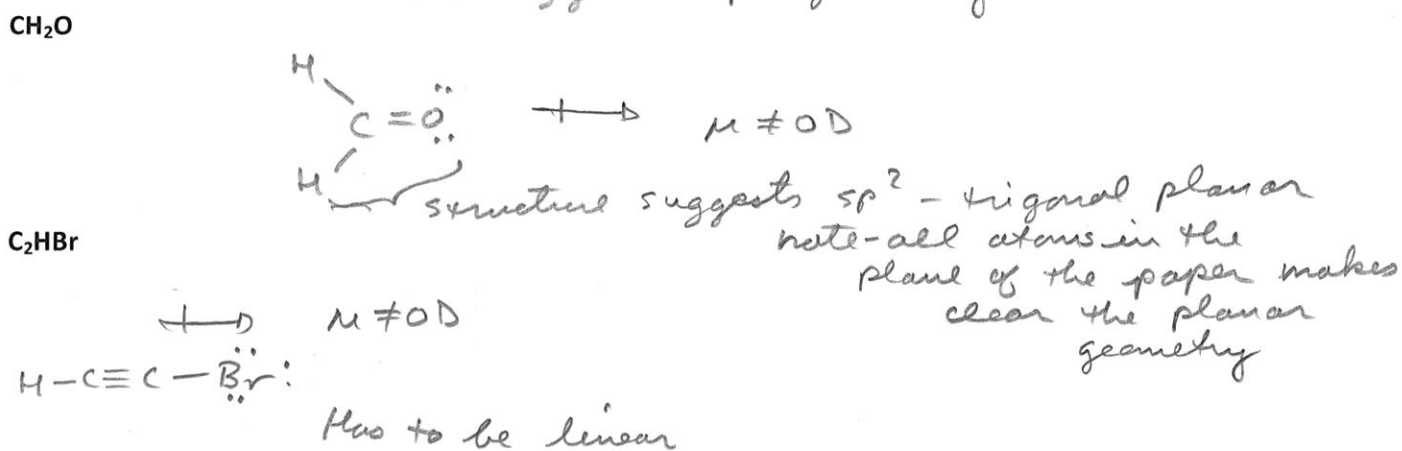 CH₂O
H
C=Ö: μ ≠ 0 D
H
structure suggests sp² – trigonal planar
note - all atoms in the
plane of the paper makes
clear the planar
geometry
C₂HBr
μ ≠ 0 D
H–C≡C–Br:
Has to be linear